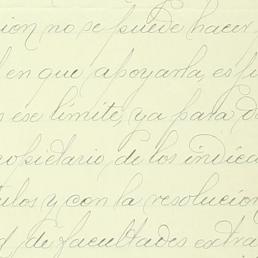 cion no se puede hacer
en que apoyarla, es
ese límite, ya para
propietario, de los indica
tulos y con la resolucion
de facultades extra